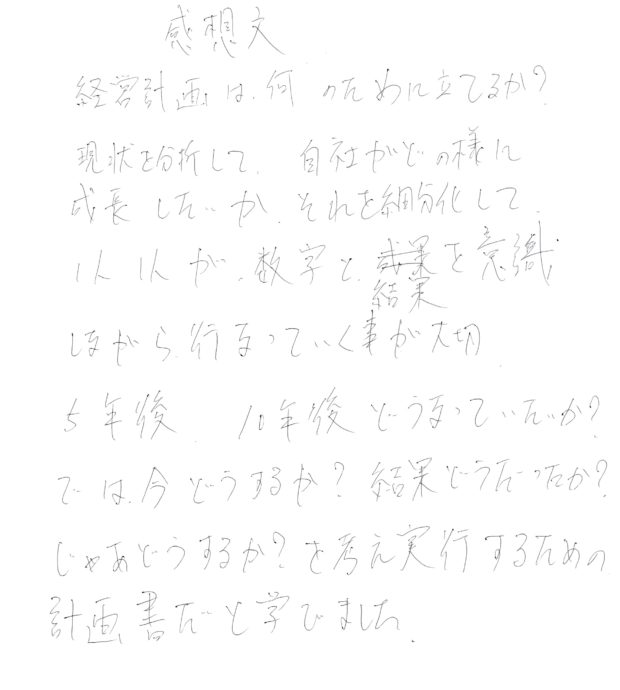 感想文
経営計画は、何のために立てるか?
現状を分析して、自社がどの様に
成長したいか、それを細分化して、
1人1人が、数字と、成果を意識
結果
しながら、行なっていく事が大切
5年後、10年後どうなっていたいか?
では、今どうするか?結果どうだったか?
じゃあどうするか?を考え実行するための
計画書だと学びました。